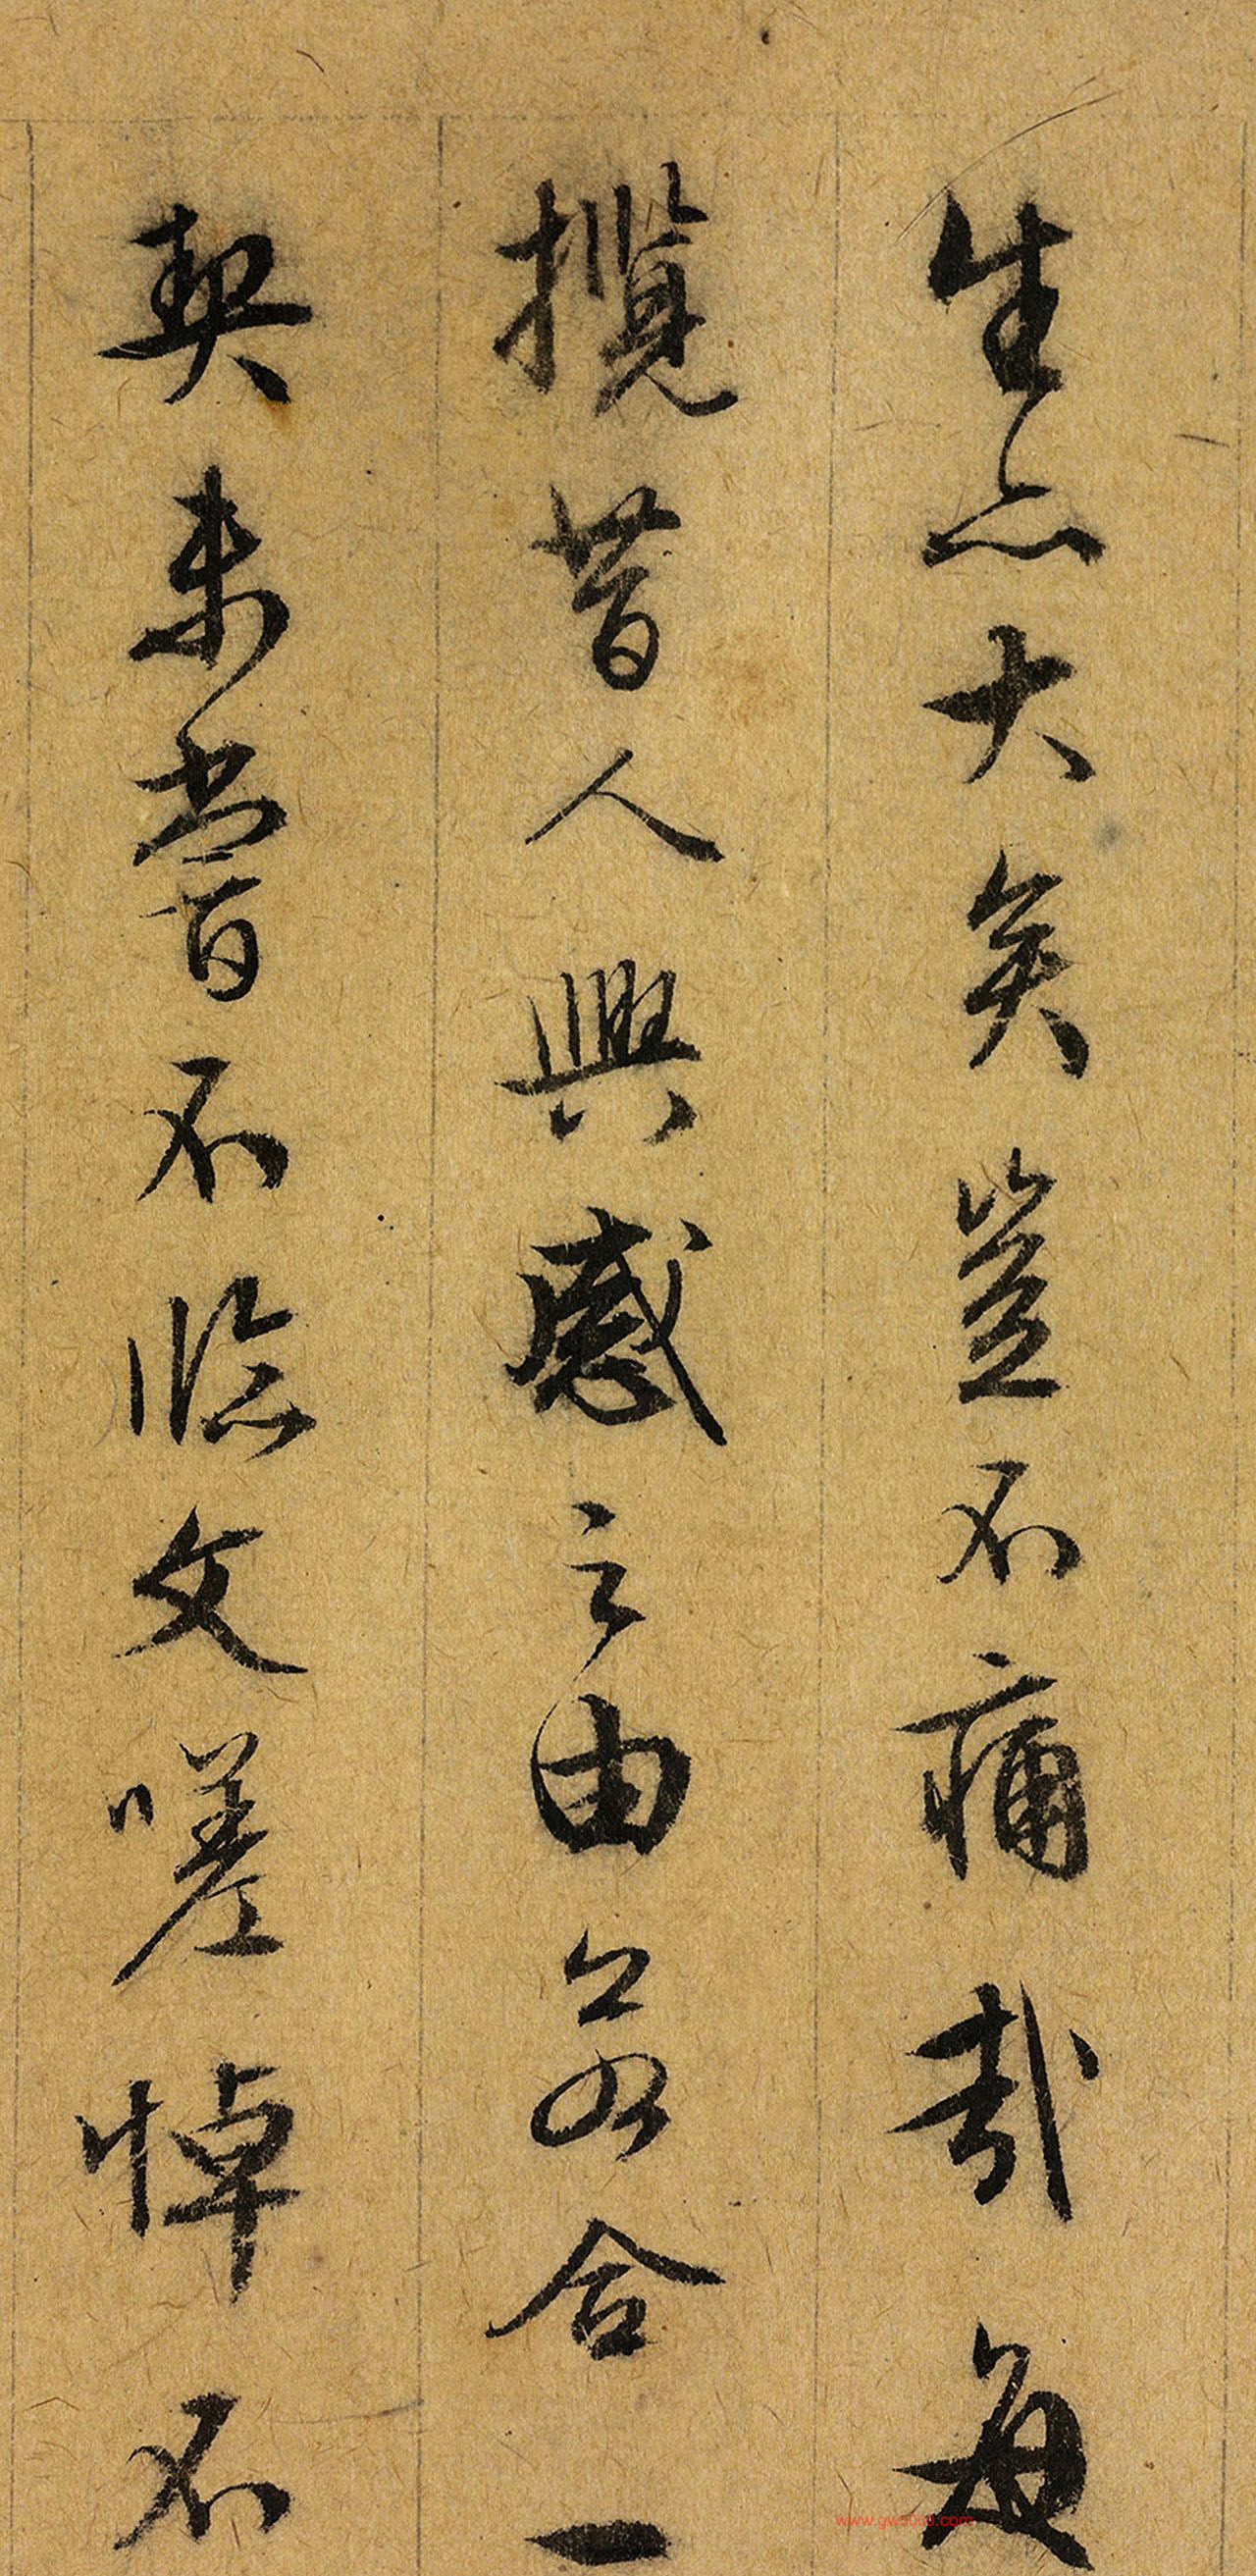 生亦大矣豈不痛哉每
攬昔人興感之由若合一
契未嘗不臨文嗟悼不
www.gw5000.com